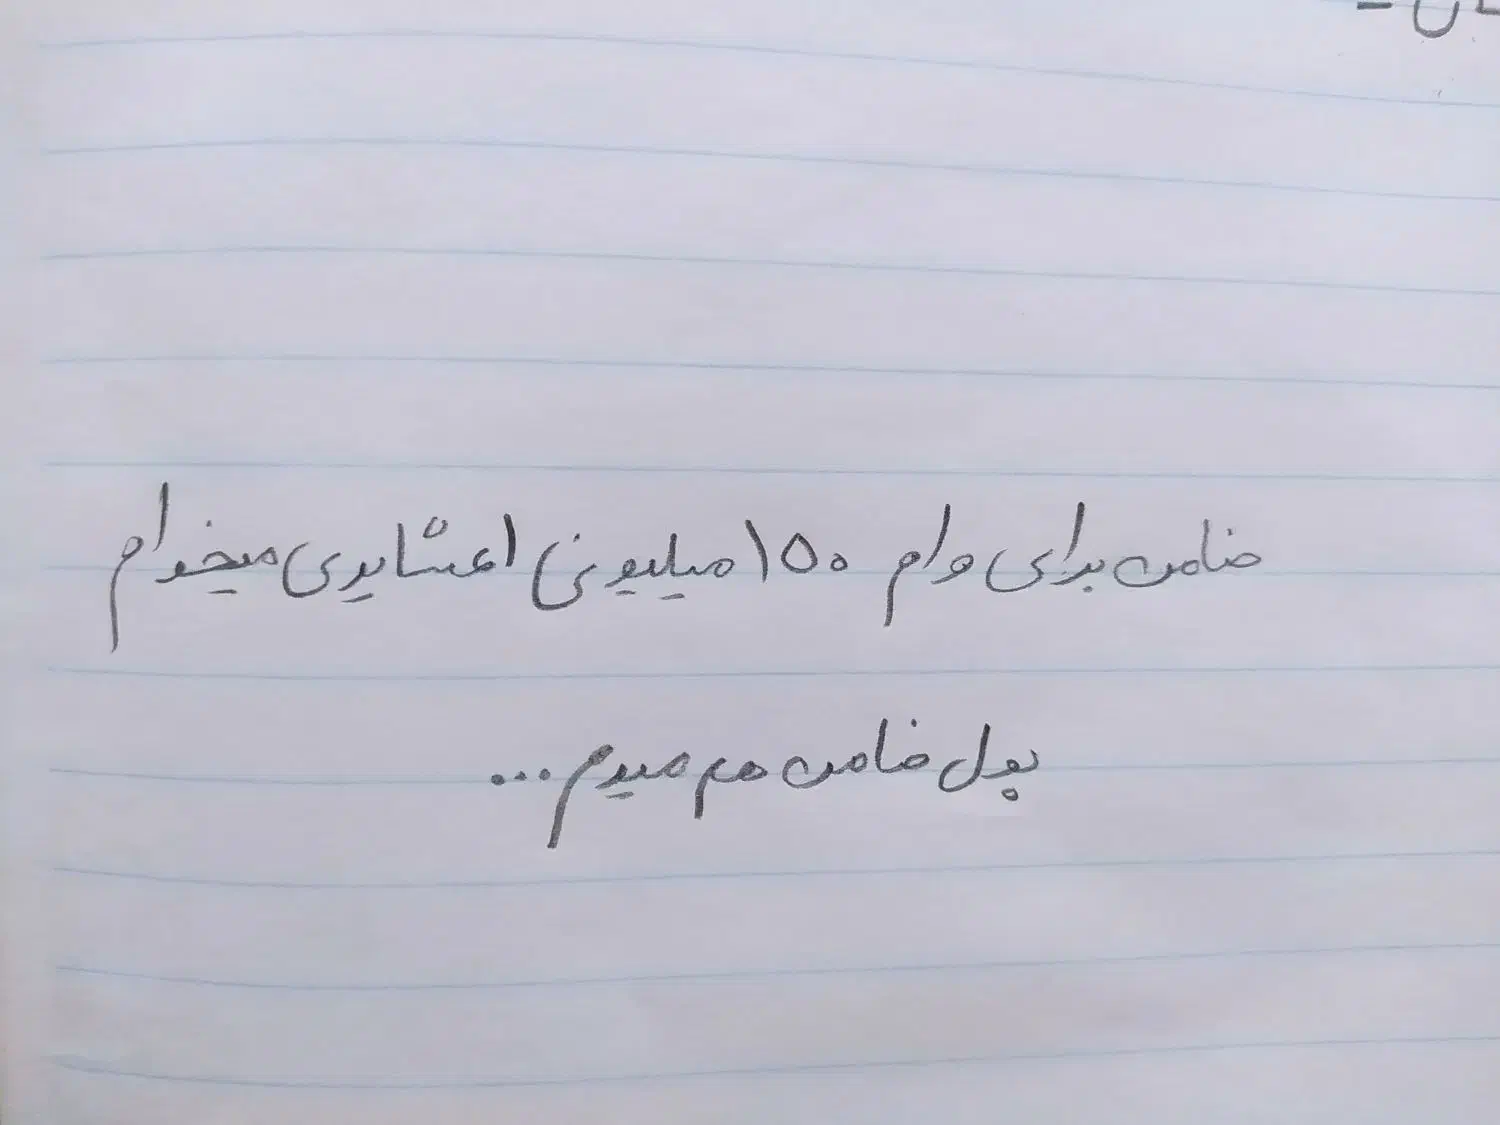 ضامن برای وام ۱۵۰ میلیونی اعشایری میخوام
پول ضامن هم میدم...